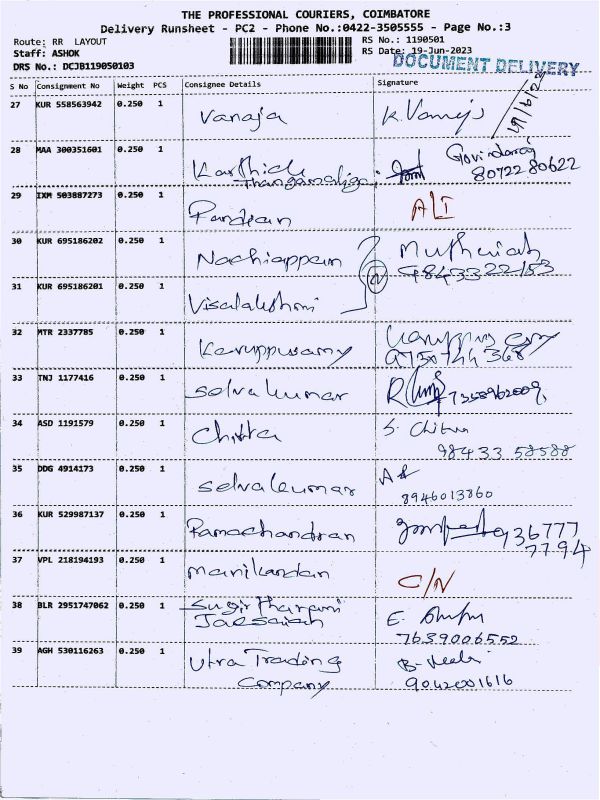 THE PROFESSIONAL COURIERS, COIMBATORE
Delivery Runsheet - PC2 - Phone No.:0422-3505555 - Page No.:3
Route: RR LAYOUT
RS No.: 1190501
Staff: ASHOK
RS Date: 19-Jun-2023
DRS No.: DCJB119050103
DOCUMENT DELIVERY
S No Consignment No Weight PCS Consignee Details Signature
27 KUR 558563942 0.250 1 Vanaja K. Vanaja
28 MAA 300351601 0.250 1 Karthick Govindaraj
Thangamaligai 80722 80622
29 IXM 503887273 0.250 1 Pandian ALI
30 KUR 695186202 0.250 1 Nachiappan Muthuiah
9843322153
31 KUR 695186201 0.250 1 Visalakshmi
32 MTR 2337785 0.250 1 Karuppusamy
9750744368
33 TNJ 1177416 0.250 1 Selvakumar
34 ASD 1191579 0.250 1 Chitra S. Chitra
98433 58588
35 DDG 4914173 0.250 1 Selvakumar
8946013860
36 KUR 529987137 0.250 1 Ramachandran 936777
7794
37 VPL 218194193 0.250 1 Manikandan C/N
38 BLR 2951747062 0.250 1 E.
7639006552
39 AGH 530116263 0.250 1 Utra Trading B.
Company 9042001616